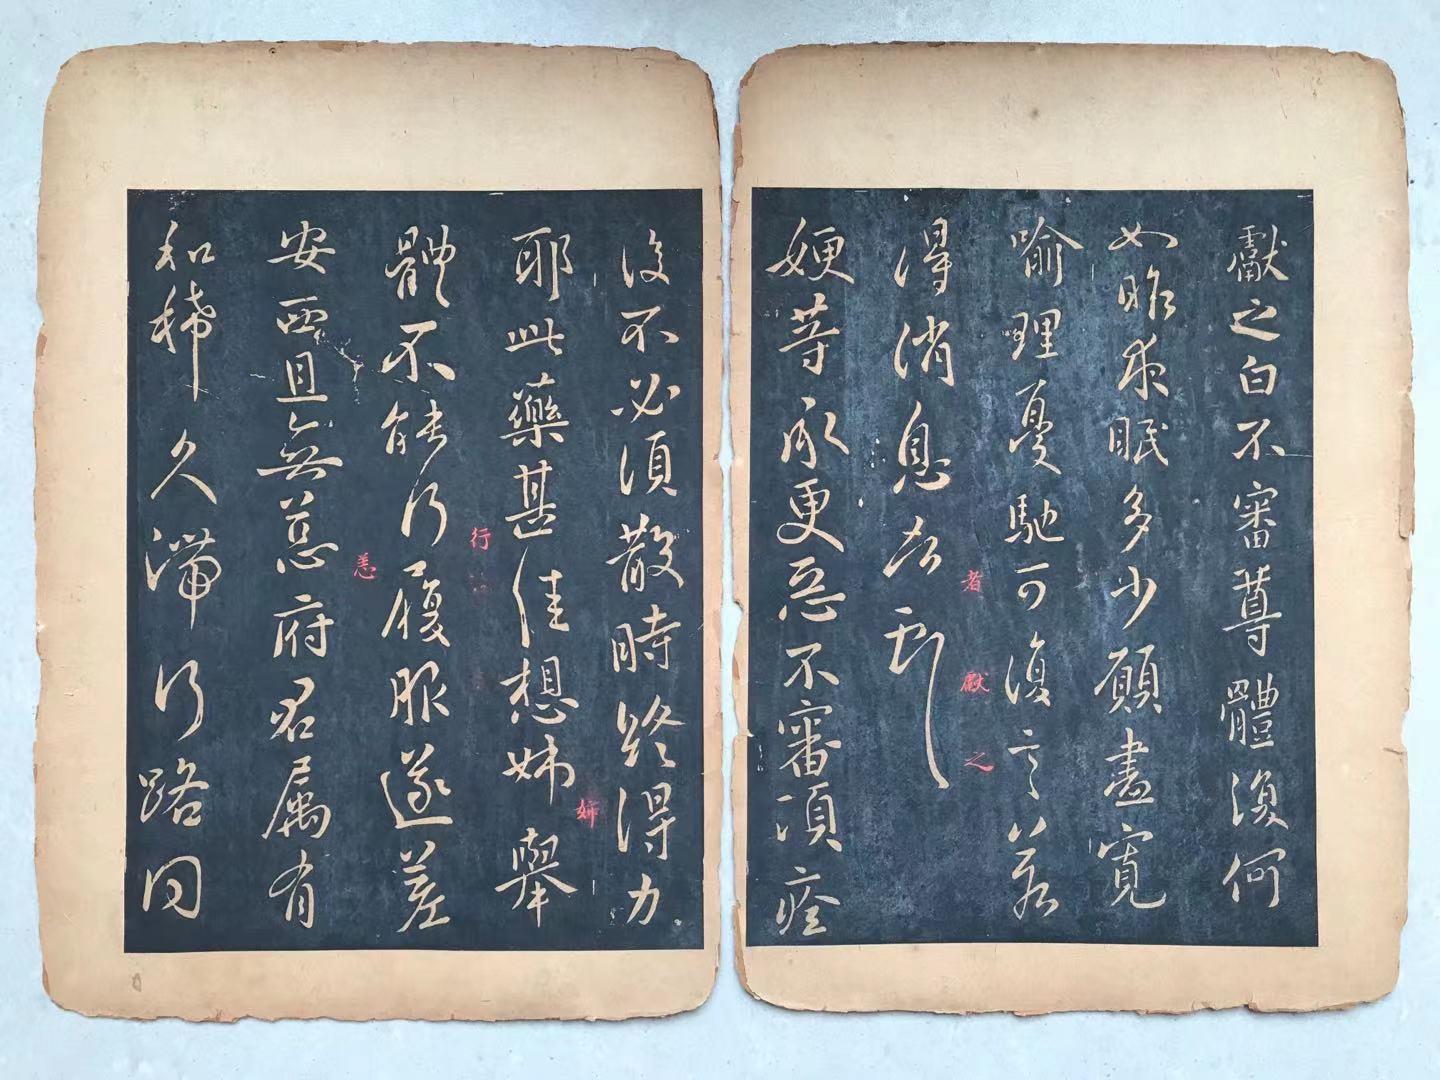 獻之白不審尊體復何
如昨夜眠多少願盡寬
喻理憂馳可復言若
者獻之
得消息者獻之
㛐等承更惡不審項痊
復不必須散時終得力
姊
耶此藥甚佳想姊舉
行
體不能行履服遂差
恙
安西且無恙府君屬有
和稀久滯行路同